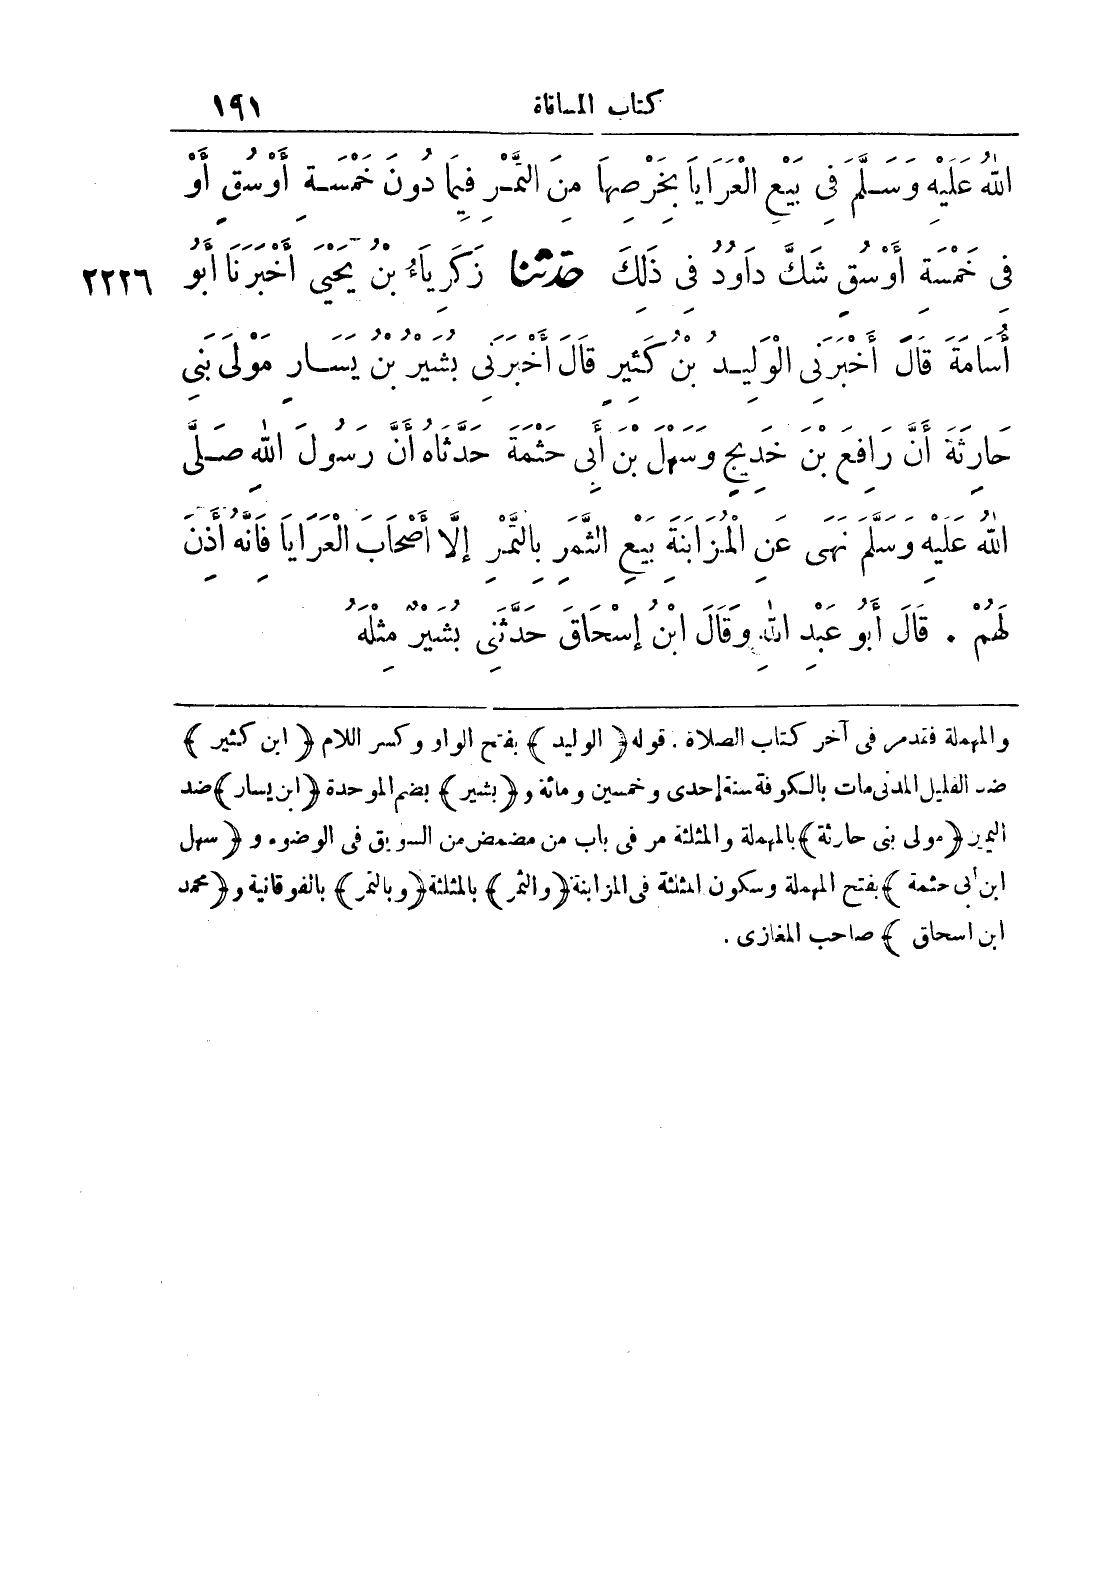 كتاب المساقاة ١٩١
اللهُ عَلَيْهِ وَسَلَّمَ فِى بَيْعِ الْعَرَايَا بِخَرْصِهَا مِنَ التَّمْرِ فِيمَا دُونَ خَمْسَةِ أَوْسُقٍ أَوْ
فِى خَمْسَةِ أَوْسُقٍ شَكَّ دَاوُدُ فِى ذَلِكَ حَدَّثَنَا زَكَرِيَاءُ بْنُ يَحْيَى أَخْبَرَنَا أَبُو ٢٢٢٦
أُسَامَةَ قَالَ أَخْبَرَنِى الْوَلِيدُ بْنُ كَثِيرٍ قَالَ أَخْبَرَنِى بُشَيْرُ بْنُ يَسَارٍ مَوْلَى بَنِى
حَارِثَةَ أَنَّ رَافِعَ بْنَ خَدِيجٍ وَسَهْلَ بْنَ أَبِى حَثْمَةَ حَدَّثَاهُ أَنَّ رَسُولَ اللهِ صَلَّى
اللهُ عَلَيْهِ وَسَلَّمَ نَهَى عَنِ الْمُزَابَنَةِ بَيْعِ الثَّمَرِ بِالتَّمْرِ إِلَّا أَصْحَابَ الْعَرَايَا فَانَّهُ أَذِنَ
لَهُمْ . قَالَ أَبُو عَبْدِ اللهِ وَقَالَ ابْنُ إِسْحَاقَ حَدَّثَنِى بُشَيْرٌ مِثْلَهُ
والمهملة فتقدمر فى آخر كتاب الصلاة . قوله ﴿ الوليد ﴾ بفتح الواو وكسر اللام ﴿ ابن كثير ﴾
ضد القليل المدنى مات بالكوفة سنة إحدى وخمسين ومائة و ﴿ بشير ﴾ بضم الموحدة ﴿ ابن يسار ﴾ ضد
اليمين ﴿ مولى بنى حارثة ﴾ بالمهملة والمثلثة مر فى باب من مضمض من السويق فى الوضوء و ﴿ سهل
ابن أبى حثمة ﴾ بفتح المهملة وسكون المثلثة فى المزابنة ﴿ والثمر ﴾ بالمثلثة ﴿ وبالتمر ﴾ بالفوقانية و ﴿ محمد
ابن اسحاق ﴾ صاحب المغازى .